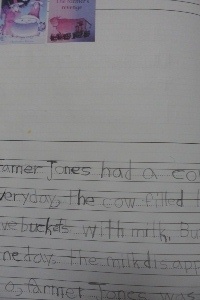 armer Jones had a co
veryday, the cow filled
ve buckets with milk. Bu
ne day, the milk disapp
o, farmer Jones was